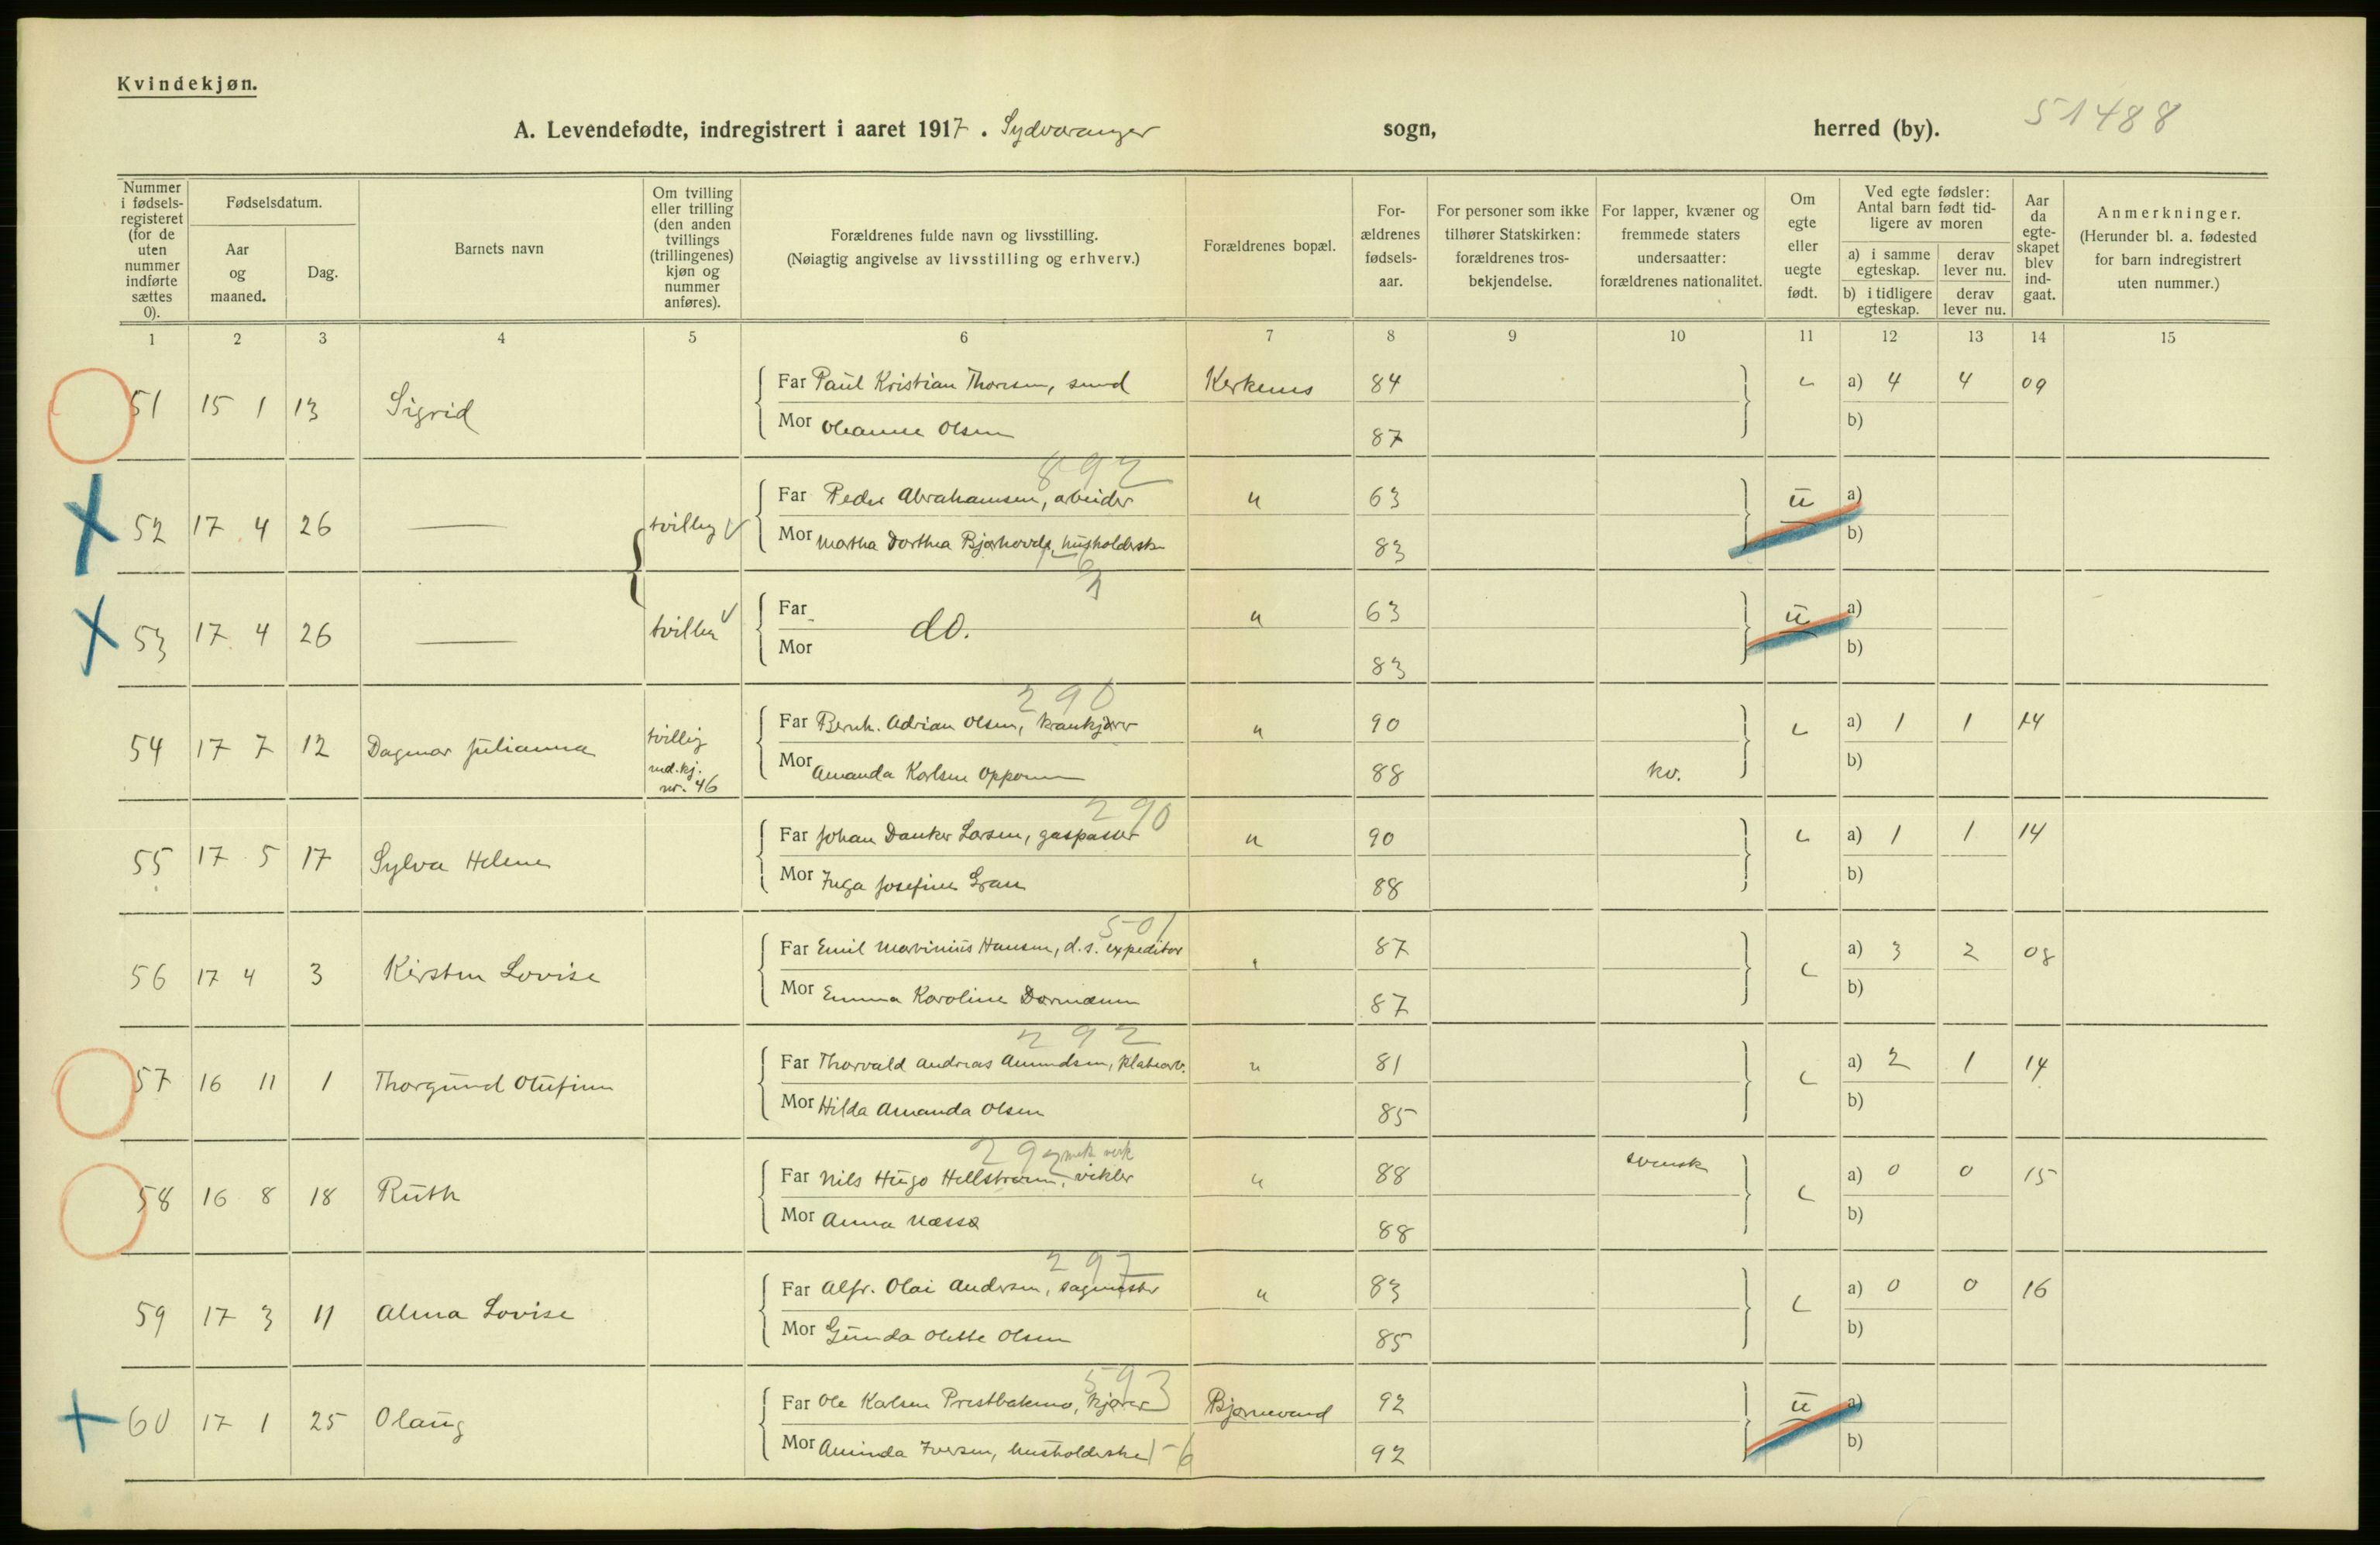 Kvindekjøn.
51488
A. Levendefødte, indregistrert i aaret 1917. Sydvaranger sogn, herred (by).
Nummer i fødsels-registeret (for de uten nummer indførte sættes 0).
Fødselsdatum.
Aar og maaned.
Dag.
Barnets navn
Om tvilling eller trilling (den anden tvillings (trillingenes) kjøn og nummer anføres).
Forældrenes fulde navn og livsstilling.
(Nøiagtig angivelse av livsstilling og erhverv.)
Forældrenes bopæl.
For-ældrenes fødsels-aar.
For personer som ikke tilhører Statskirken: forældrenes tros-bekjendelse.
For lapper, kvæner og fremmede staters undersaatter: forældrenes nationalitet.
Om egte eller uegte født.
Ved egte fødsler: Antal barn født tid-ligere av moren
a) i samme egteskap.
derav lever nu.
b) i tidligere egteskap.
derav lever nu.
Aar da egte-skapet blev ind-gaat.
Anmerkninger.
(Herunder bl. a. fødested for barn indregistrert uten nummer.)
1 2 3 4 5 6 7 8 9 10 11 12 13 14 15
51 15 1 13 Sigrid Far Paul Kristian Thoresen, smed Kirkenes 84 e a) 4 4 09
Mor Oleanne Olsen 87 b)
892
52 17 4 26 — tvilling Far Peder Abrahamsen, arbeider " 63 u a)
Mor Martha Dorthea husholderske 83 b)
53 17 4 26 — tvilling Far do. " 63 u a)
Mor 83 b)
290
54 17 7 12 Dagmar Julianna tvilling md.kj. nr. 46 Far Bernh. Adrian Olsen, krankjører " 90 e a) 1 1 14
Mor Amanda Karlsen 88 kv. b)
290
55 17 5 17 Sylva Helene Far Johan Danker Larsen, gaspasser " 90 e a) 1 1 14
Mor Inga Josefine Gran 88 b)
501
56 17 4 3 Kirsten Lovise Far Emil Marinius Hansen, d.s. expeditør " 87 e a) 3 2 08
Mor Emma Karoline 87 b)
292
57 16 11 1 Thorgund Olufine Far Thorvald Andreas Amundsen, " 81 e a) 2 1 14
Mor Hilda Amanda Olsen 85 b)
292 mek verk
58 16 8 18 Ruth Far Nils Hugo Hellstrøm, vikler " 88 svensk e a) 0 0 15
Mor Anna 88 b)
297
59 17 3 11 Alma Lovise Far Alfr. Olai Andersen, sagmester " 83 e a) 0 0 16
Mor Gunda Olette Olsen 85 b)
593
60 17 1 25 Olaug Far Ole Kalsen Prestbakmo, kjører Bjørnevand 92 u a)
Mor Aminda Iversen, husholderske 92 b)